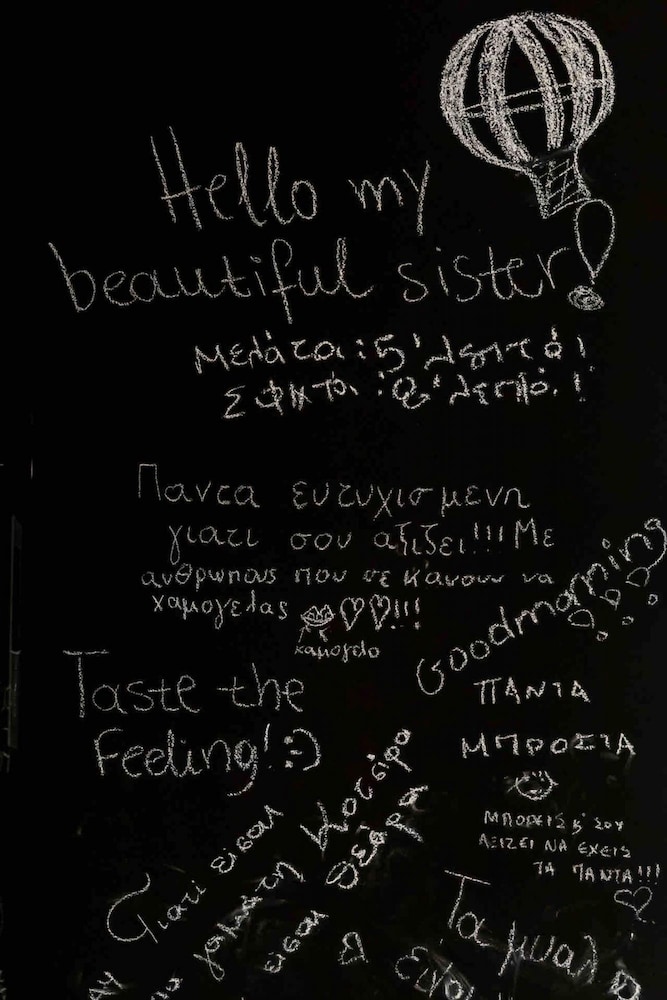 Hello my
beautiful sister!
Μελάτα: 5' λεπτά!
Σφηχτά: 8' λεπτά!
Παντα ευτυχισμενη
γιατι σου αξιζει!!! Με
ανθρωπους που σε κανουν να
χαμογελας ♡♡!!!
χαμογελο
Goodmorning
Taste the
Feeling! :)
ΠΑΝΤΑ
ΜΠΡΟΣΤΑ
ΜΠΟΡΕΙΣ κ' ΣΟΥ
ΑΞΙΖΕΙ ΝΑ ΕΧΕΙΣ
ΤΑ ΠΑΝΤΑ!!!
Γιατί εισαι
γαμάτη
εισαι θεάρα
Τα μυαλ